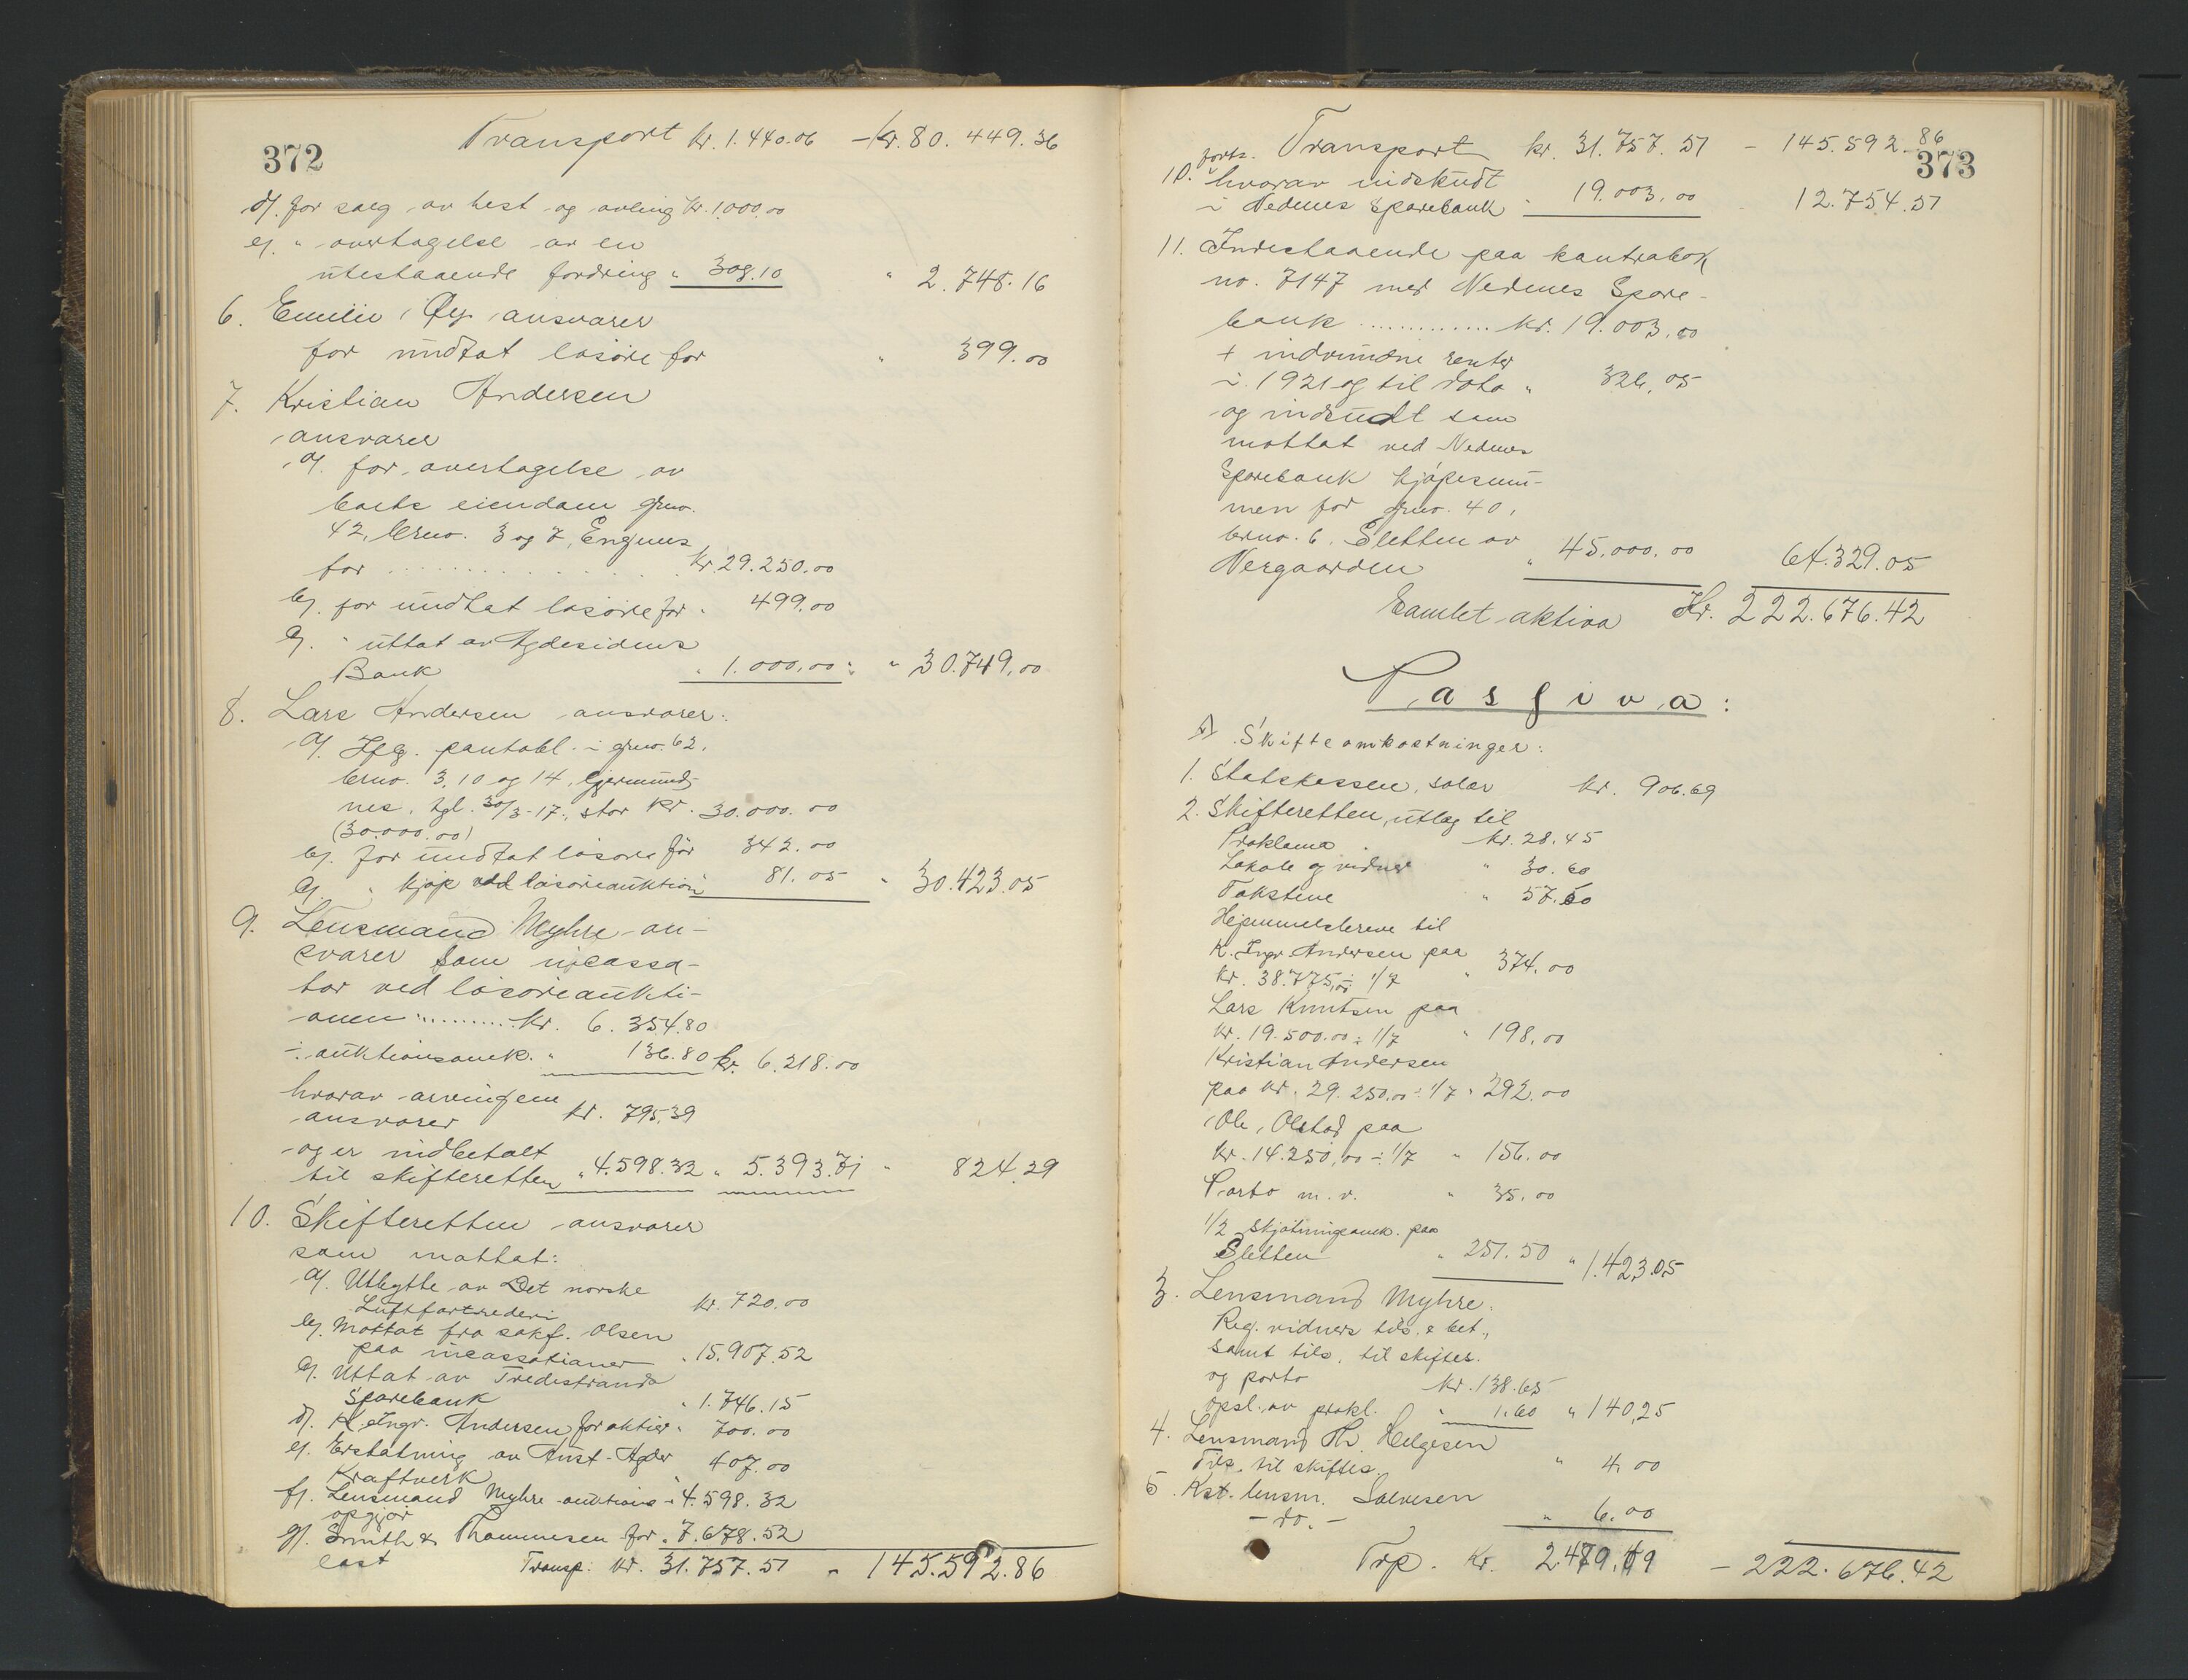 372
Transport kr. 1.440.06 - kr. 80.449.36
d/. for salg av hest og avling kr. 1.000.00
e/. " overtagelse av en
utestaaende fordring " 308.10 " 2.748.16
6. Emilie Øy ansvarer
for undtat løsøre for " 399.00
7. Kristian Andersen
ansvarer
a/. for overtagelse av
boets eiendom gno.
42, bruno. 3 og 7, Engnes
for . . . . . . . . . kr. 29.250.00
b/. for undtat løsøre for " 499.00
c/. " uttat av Agdesidens
Bank " 1.000.00 " 30.749.00
8. Lars Andersen ansvarer:
a/. Iflg. pantobl. i gno. 62,
bruno. 3, 10 og 14, Gjermund-
nes, tgl. 30/3-17, stor kr. 30.000.00
(30.000.00)
b/. for undtat løsøre for 342.00
c/. " kjøp ved løsøreauktion 81.05 " 30.423.05
9. Lensmand Myhre an-
svarer som incassa-
tor ved løsøreaukti-
onen .......... kr. 6.354.80
÷ auktionsomk. " 136.80 kr. 6.218.00
hvorav arvingene
ansvarer kr. 795.39
og er indbetalt
til skifteretten " 4.598.32 " 5.393.71 " 824.29
10. Skifteretten ansvarer
som mottat:
a/. Utbytte av Det norske
Luftfartrederi kr. 720.00
b/. Mottat fra sakf. Olsen
paa incassationer " 15.907.52
c/. Uttat av Tvedestrands
Sparebank " 1.746.15
d/. K. Ingv. Andersen for aktier " 700.00
e/. Erstatning av Aust-Agder
Kraftverk 407.00
f/. Lensmand Myhre auktions- " 4.598.32
opgjør
g/. Smith & Thommesen for " 7.678.52
last Transp: kr. 31.757.51 " 145.592.86
373
forts. Transport kr. 31.757.51 - 145.592.86
10. hvorav indskudt
i Nedenes Sparebank " 19.003.00 12.754.51
11. Indestaaende paa kontrabok
no. 7147 med Nedenes Spare-
bank ............. kr. 19.003.00
+ indvundne renter
i 1921 og til dato " 326.05
og indskudt som
mottat ved Nedenes
Sparebank kjøpesum-
men for gno. 40,
bruno. 6, Sletten av
Nergaarden " 45.000.00 64.329.05
Samlet aktiva Kr. 222.676.42
Passiva:
A) Skifteomkostninger:
1. Statskassen, salær kr. 906.69
2. Skifteretten, utlæg til
Proklama kr. 28.45
Lokale og vidner " 30.60
Takstene " 57.50
Hjemmelsbreve til
K. Ingv. Andersen paa
kr. 38.775.00 ÷ 1/7 " 374.00
Lars Knutsen paa
kr. 19.500.00 ÷ 1/7 " 198.00
Kristian Andersen
paa kr. 29.250.00 ÷ 1/7 " 292.00
Ole Olstad paa
kr. 14.250.00 ÷ 1/7 " 156.00
Porto m.v. " 35.00
1/2 skjøtningsomk. paa
Sletten " 251.50 " 1.423.05
3. Lensmand Myhre:
Reg. vidners tils. & bet.,
samt tils. til skiftes.
og porto kr. 138.65
opsl. av prokl. " 1.60 " 140.25
4. Lensmand Th. Helgesen
Tils. til skiftes. " 4.00
5. Kst. lensm. Salvesen
- do. - " 6.00
Trp. kr. 2479.19 - 222.676.42